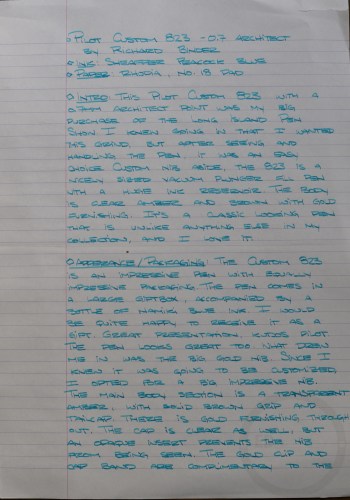 ○ Pilot Custom 823 - 0.7 Architect
by Richard Binder
○ Ink: Sheaffer Peacock Blue
○ Paper: Rhodia, No. 18 Pad
○ Intro: This Pilot Custom 823 with a
0.7mm Architect point was my big
purchase of the Long Island Pen
Show. I knew going in that I wanted
this grind, but after seeing and
handling the pen, it was an easy
choice. Custom nib aside, the 823 is a
nicely sized vacuum plunger fill pen
with a huge ink reservoir. The body
is clear amber and brown with gold
furnishing. It's a classic looking pen
that is unlike anything else in my
collection, and I love it.
○ Appearance/Packaging: The Custom 823
is an impressive pen with equally
impressive packaging. The pen comes in
a large giftbox, accompanied by a
bottle of Namiki Blue ink. I would
be quite happy to receive it as a
gift. Great presentation, kudos Pilot.
The pen looks great too. What drew
me in was the big gold nib. Since I
knew it was going to be customized
I opted for a big, impressive nib.
The main body section is a transparent
amber, with solid brown grip and
tailcap. There is gold furnishing through
out. The cap is clear as well, but
an opaque insert prevents the nib
from being seen. The gold clip and
cap band are complimentary to the